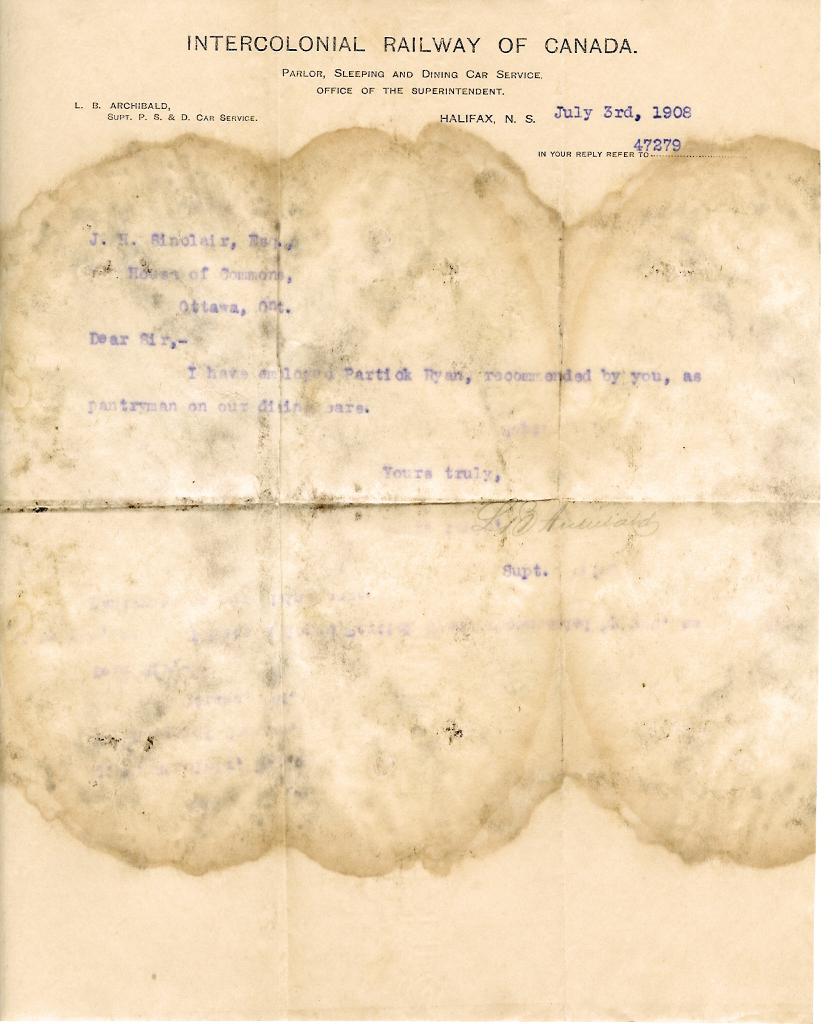 INTERCOLONIAL RAILWAY OF CANADA.
PARLOR, SLEEPING AND DINING CAR SERVICE.
OFFICE OF THE SUPERINTENDENT.
L. B. ARCHIBALD,
SUPT. P. S. & D. CAR SERVICE.
HALIFAX, N. S. July 3rd, 1908
IN YOUR REPLY REFER TO 47279
J. H. Sinclair, Esq.,
House of Commons,
Ottawa, Ont.
Dear Sir,-
I have employed Partick Ryan, recommended by you, as
pantryman on our dining cars.
Yours truly,
L B Archibald
Supt.